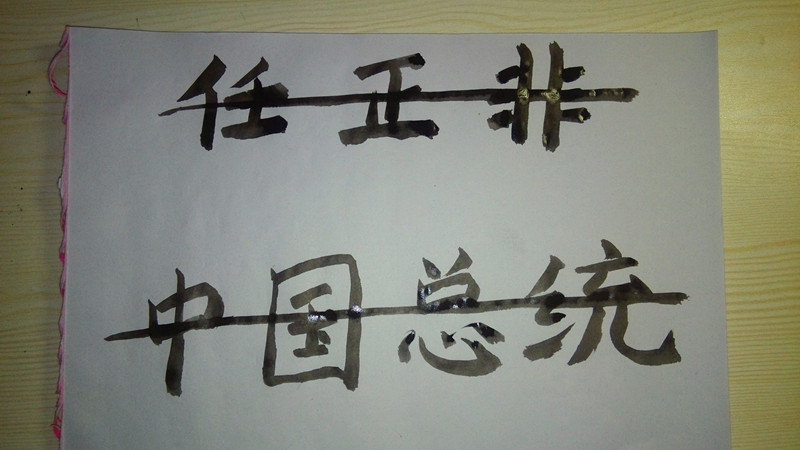 任正非
中国总统